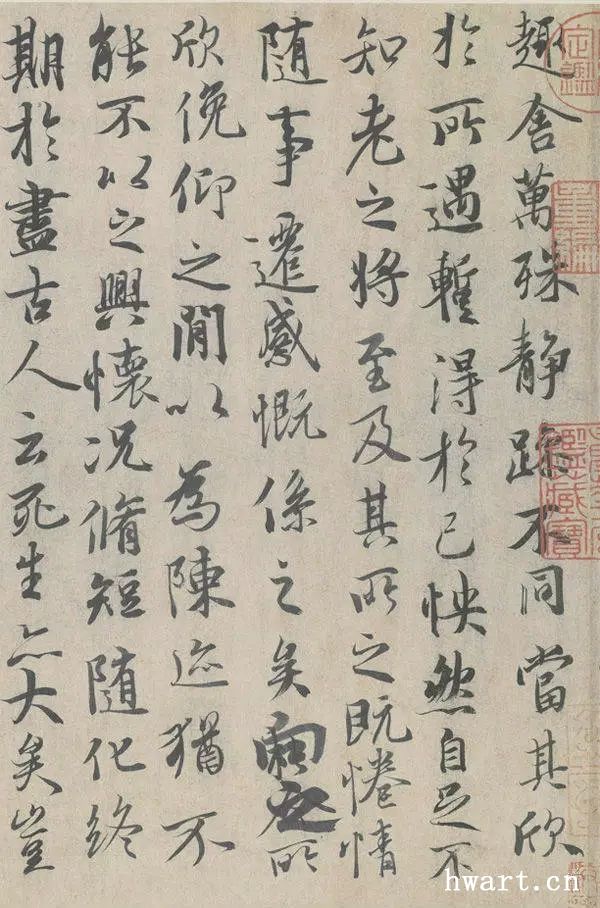 趣舍萬殊静躁不同當其欣
於所遇暫得於己怏然自足不
知老之將至及其所之既惓情
隨事遷感慨係之矣向之所
欣俛仰之閒以為陳迹猶不
能不以之興懷況脩短隨化終
期於盡古人云死生亦大矣豈
hwart.cn